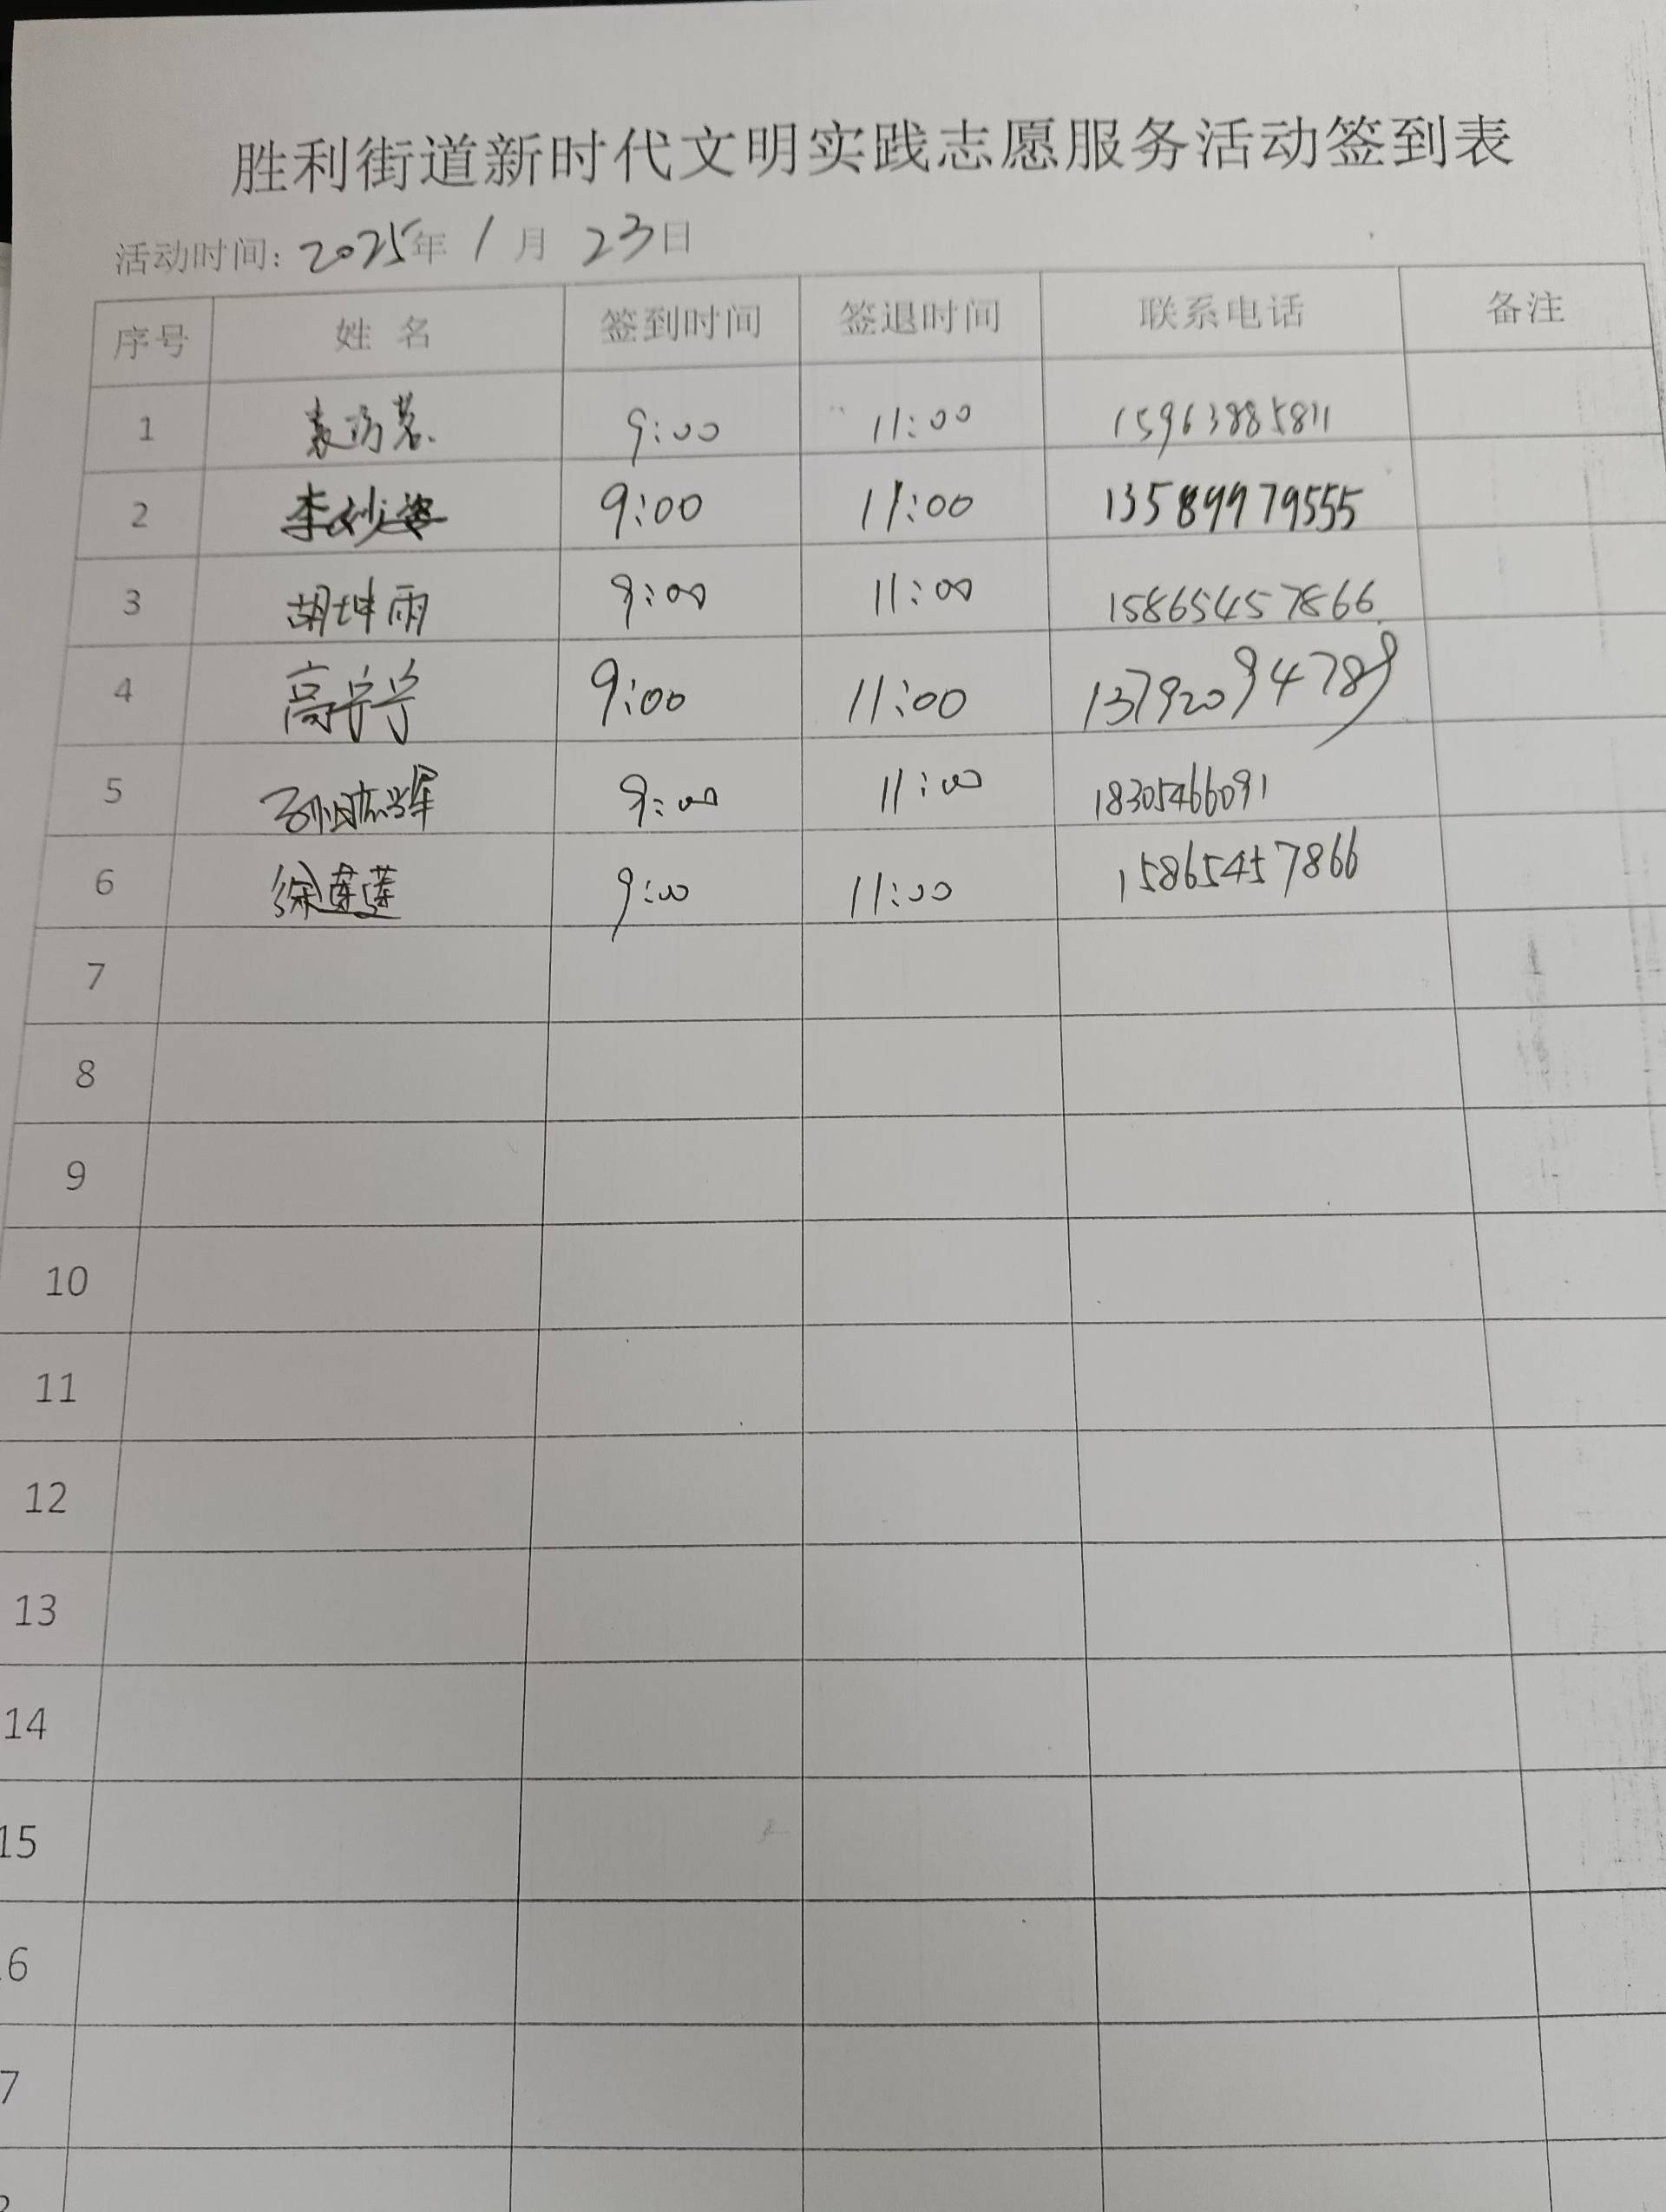 胜利街道新时代文明实践志愿服务活动签到表
活动时间: 2025年 1 月 23日
序号 姓 名 签到时间 签退时间 联系电话 备注
1 9:00 11:00 15963885811
2 李 9:00 11:00 13589979555
3 胡坤雨 9:00 11:00 15865457866
4 高宁宁 9:00 11:00 13792094789
5 9:00 11:00 18305466091
6 徐莲莲 9:00 11:00 15865457866
7
8
9
10
11
12
13
14
15
6
7